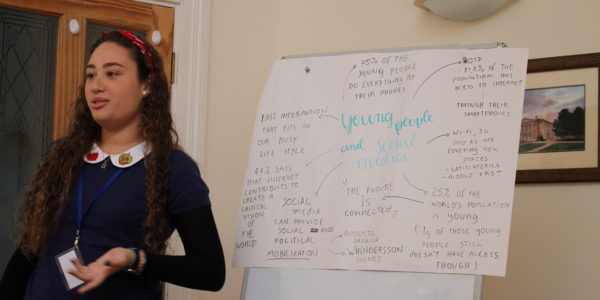 70% OF THE
YOUNG PEOPLE
DO EVERYTHING BY
THEIR PHONES
2017
% OF THE
POPULATION HAS
ACCESS TO INTERNET
THROUGH THEIR
SMARTPHONES
FAST INFORMATION
THAT FITS IN
OUR BUSY
LIFE STYLE
young people
and social
media
WI-FI, 3G
and 4G ARE
COVERING NEW
PLACES
- LATIN AMERICA
- MIDDLE EAST
44% SAYS
THAT INTERNET
CONTRIBUITS TO
CREATE A
CRITICAL
VISION OF
THE
WORLD
SOCIAL
MEDIA
CAN PROVIDE
SOCIAL AND
POLITICAL
MOBILIZATION
"THE FUTURE
IS
CONNECTED"
AUGUSTA
WHINDERSSON
NUNES
25% OF THE
WORLD'S POPULATION
IS YOUNG
( % OF THOSE YOUNG
PEOPLE STILL
DOESN'T HAVE ACCESS
THOUGH)